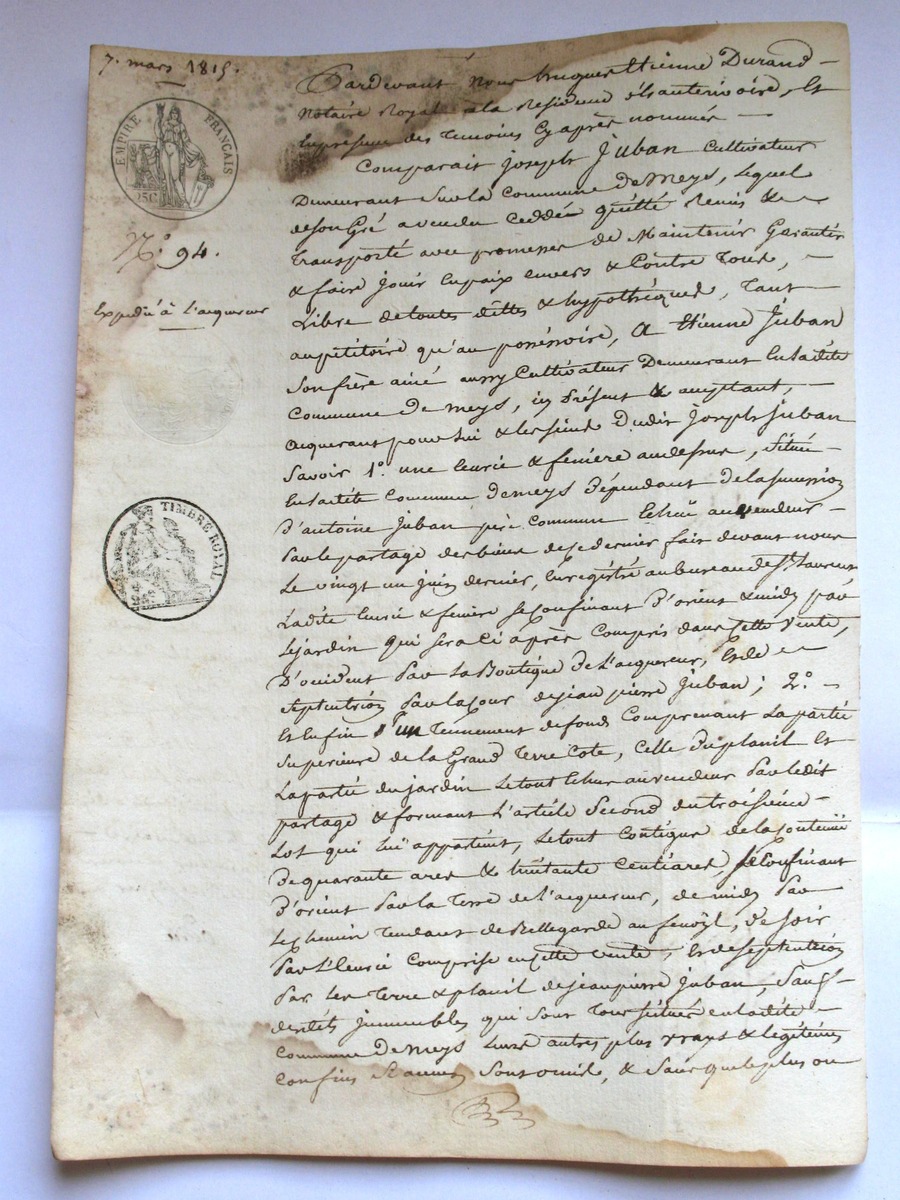 7. mars 1815.
EMPIRE FRANÇAIS
25C
N.° 94.
Expedié à l'acquereur
TIMBRE ROYAL
Pardevant nous hugues Etienne Durand
Notaire Royal à la Residence et
En presence des Temoins Cy après nommés
Comparait joseph Juban Cultivateur
Demeurant Sur la Commune De meys, lequel
de son Gré a vendu Ceddé quitté Remis &
Transporté avec promesse de Maintenir Garantir
& faire jouir En paix envers & Contre Tous,
Libre de toutes dettes & hypothèques, Tant
au pétitoire qu'au possessoire, A Etienne Juban
Son frère ainé aussy Cultivateur Demeurant En ladite
Commune De meys, icy Présent & acceptant,
acquerant pour Lui & les siens Dudit Joseph Juban
Savoir 1.° une Ecurie & feniere au dessus, Située
En ladite Commune De meys Dépendant De la succession
D'antoine Juban père commun Echue au vendeur
Par le partage des biens de ce dernier fait devant nous
Le vingt un juin dernier, Enregistré au bureau de St. Laurent
Ladite Ecurie & feniere se Confinant D'orient & midy par
Le jardin qui sera Ci après Compris dans Cette Vente,
D'occident Par La Boutique de L'acquereur, Et de
Septentrion Par la Cour de jean pierre Juban; 2.°
Et Enfin d'un Tennement de fonds Comprenant La partie
Superieure de la Grand Terre Cote, Celle Du planil Et
La partie du jardin Le tout Echue au vendeur Par Ledit
partage & formant L'article Second du troisieme
Lot qui lui appartient, Le tout Contigue de la Contenue
De quarante ares & huitante Centiares, se Confinant
D'orient Par La Terre de l'acquereur, de midy Par
Le chemin Tendant de Bellegarde au fenoyl, De soir
Par L'Ecurie Comprise en Cette vente, Et de Septentrion
Par les Terre & planil de jean pierre Juban, Sauf
desdits jmmeubles qui Sont Tous Situés en ladite
Commune De meys Leurs autres plus vrays & legitimes
Confins Si aucuns Sont omis, & Sans que le plus ou